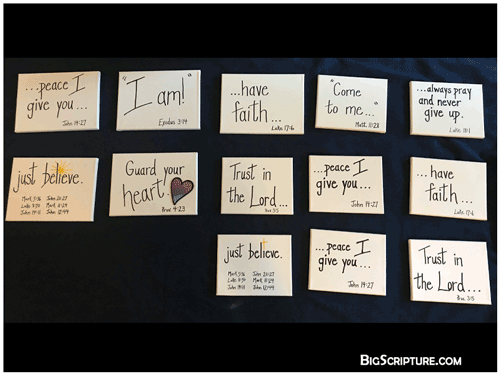 ...peace I
give you...
John 14:27
"I am!"
Exodus 3:14
...have
faith...
Luke 17:6
"Come
to me..."
Matt. 11:28
...always pray
and never
give up.
Luke 18:1
just believe.
Mark 5:36 John 20:27
Luke 8:50 Mark 11:24
John 14:11 John 12:44
Guard your
heart
Prov 4:23
Trust in
the Lord...
Prov. 3:5
...peace I
give you...
John 14:27
...have
faith...
Luke 17:6
just believe.
Mark 5:36 John 20:27
Luke 8:50 Mark 11:24
John 14:11 John 12:44
...peace I
give you...
John 14:27
Trust in
the Lord...
Prov. 3:5
BigScripture.com